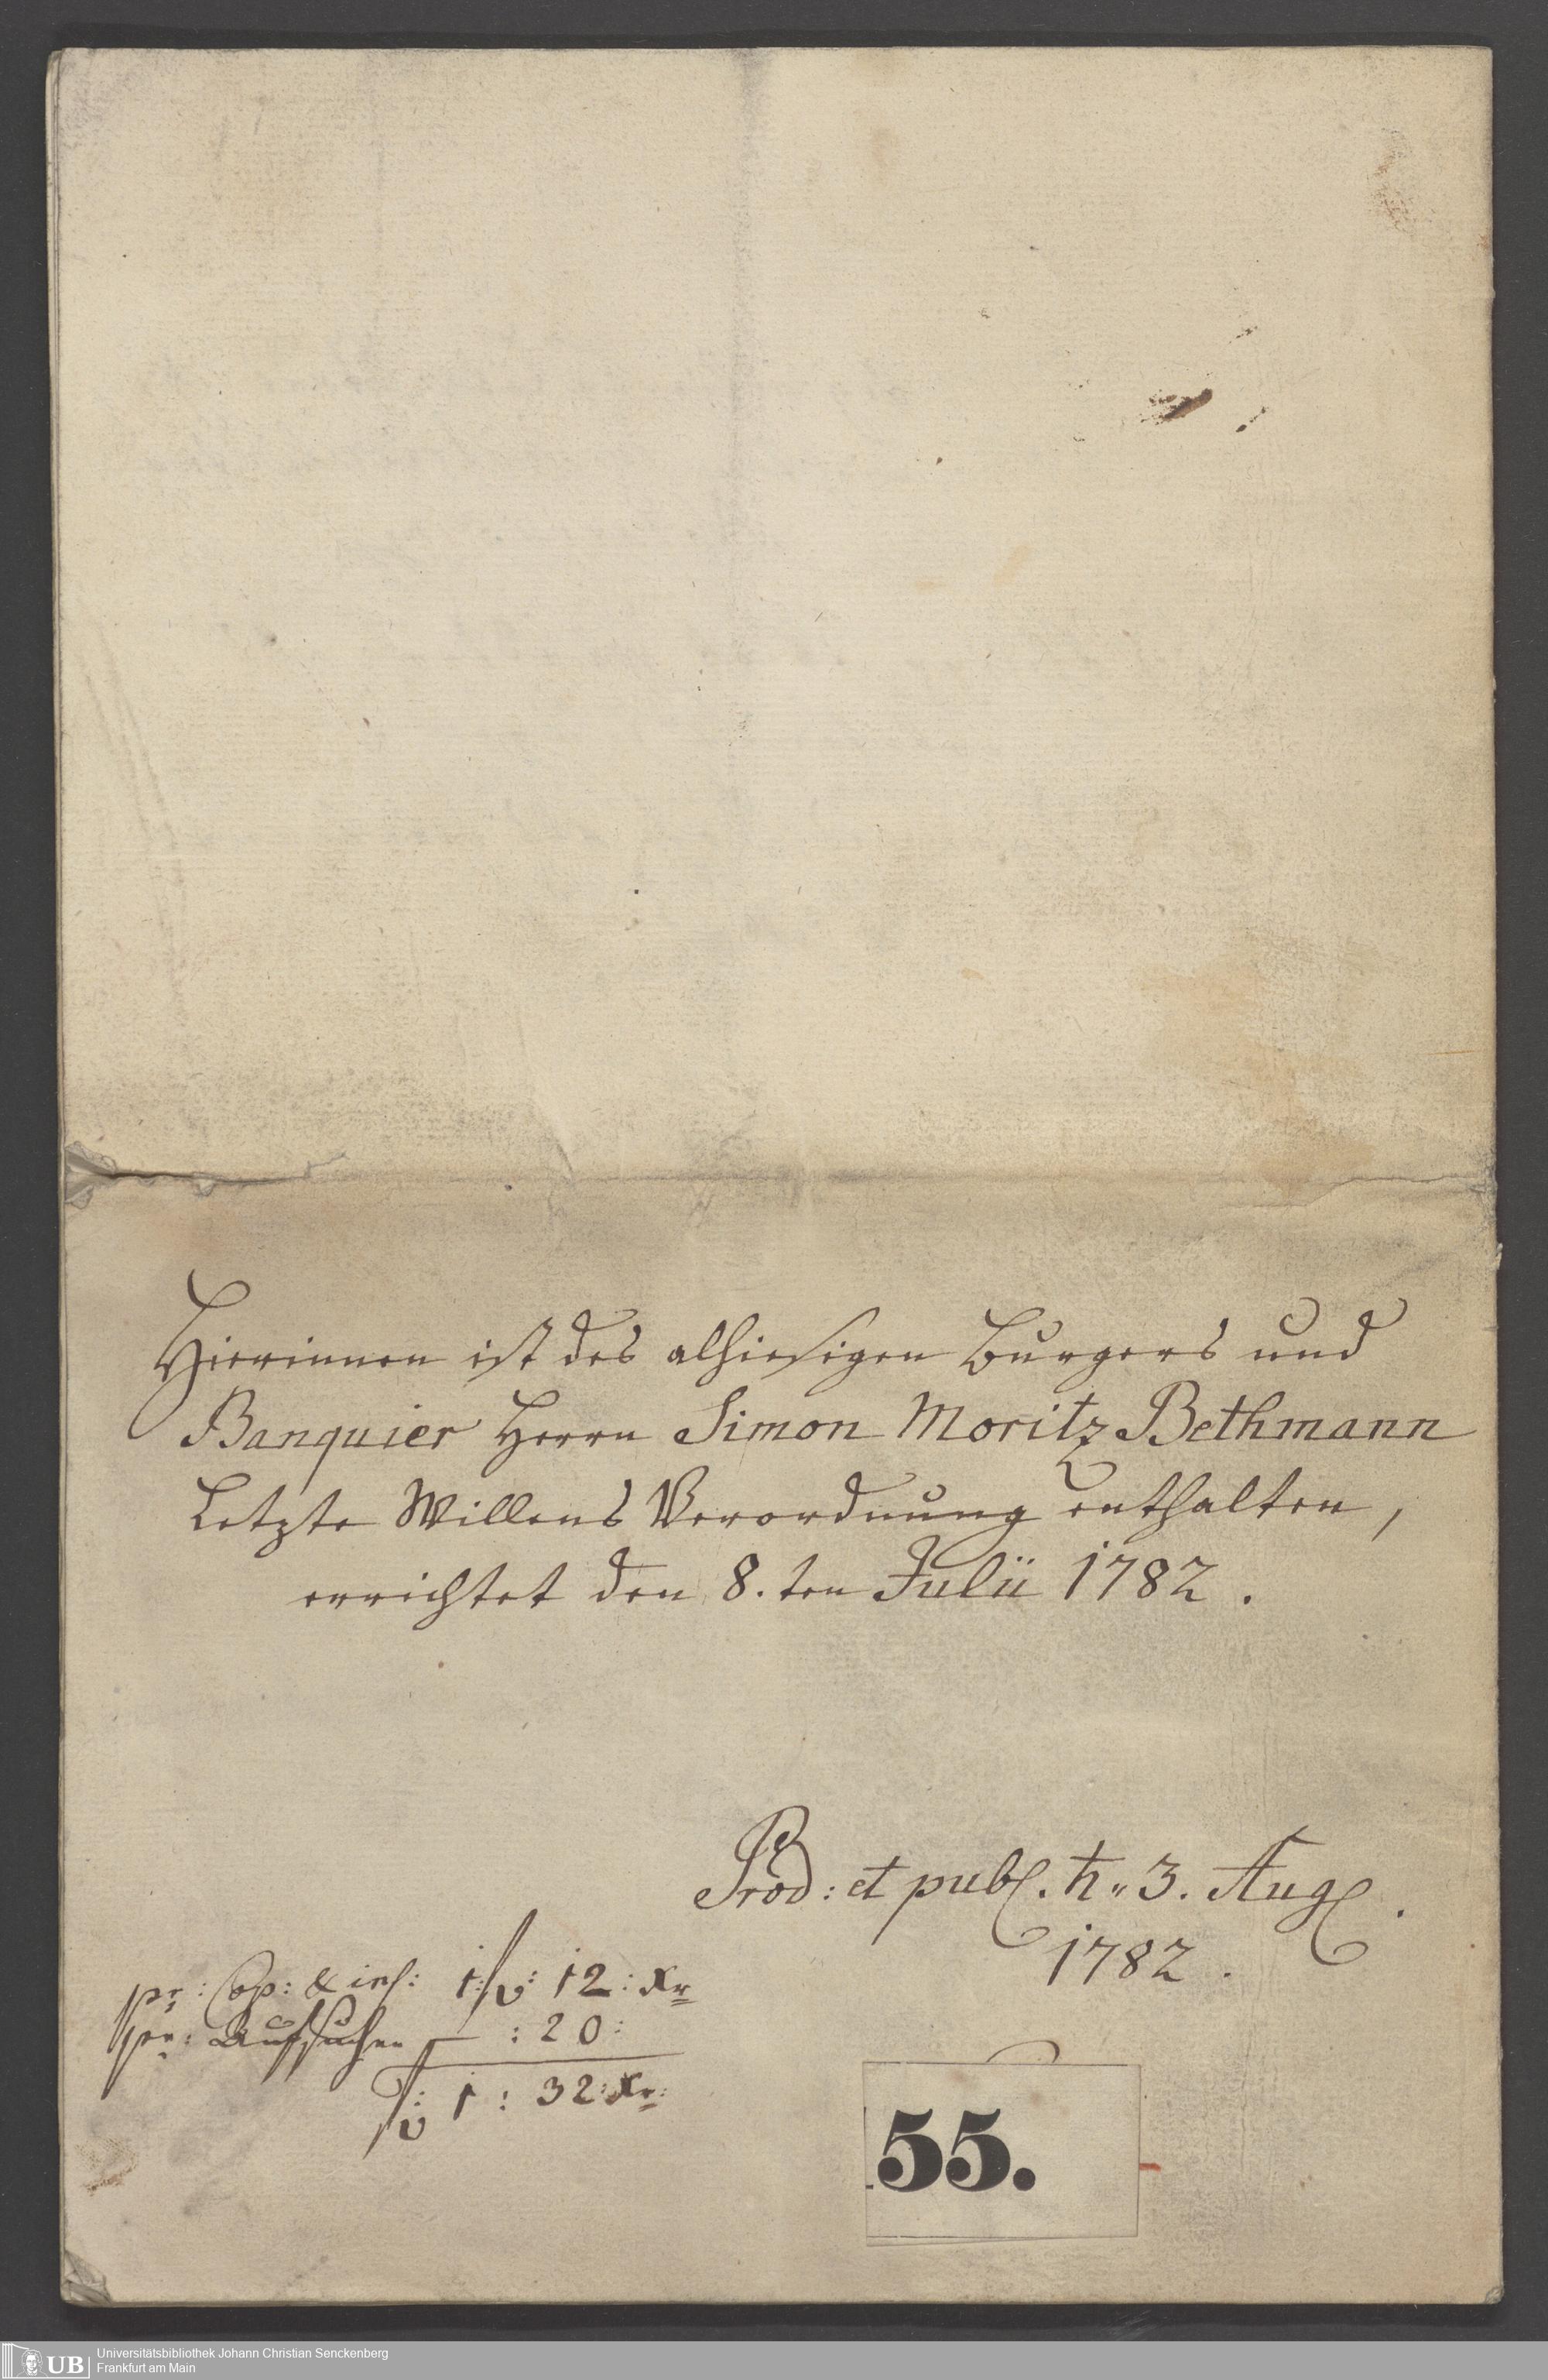 Hierinnen ist des alhiesigen Burgers und
Banquier Herrn Simon Moritz Bethmann
Letzte Willens Verordnung enthalten,
errichtet den 8.ten Julii 1782.
Prod: et publ. h. 3. Aug.
1782.
pr: Cop: & inf: 1 f: 12: Xr
pr: Aufsuchen — : 20:
f: 1: 32: Xr:
55.
UB Universitätsbibliothek Johann Christian Senckenberg
Frankfurt am Main